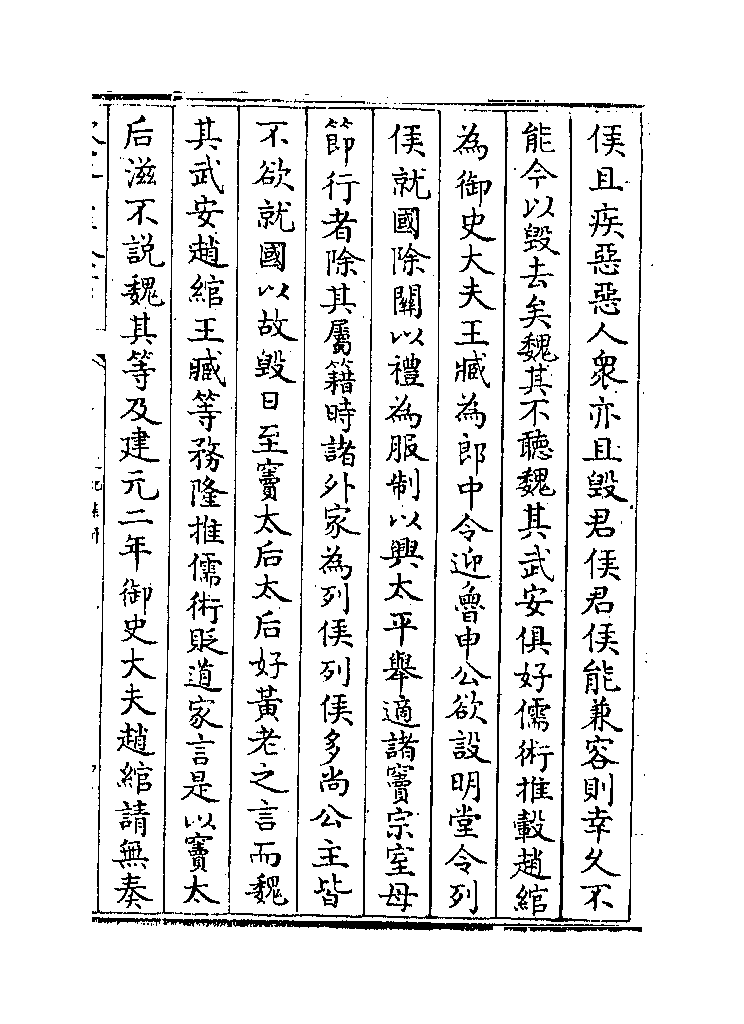 侯且疾惡惡人衆亦且毀君侯君侯能兼容則幸久不
能今以毀去矣魏其不聽魏其武安俱好儒術推轂趙綰
為御史大夫王臧為郎中令迎魯申公欲設明堂令列
侯就國除關以禮為服制以興太平舉適諸竇宗室毋
節行者除其屬籍時諸外家為列侯列侯多尚公主皆
不欲就國以故毀日至竇太后太后好黃老之言而魏
其武安趙綰王臧等務隆推儒術貶道家言是以竇太
后滋不說魏其等及建元二年御史大夫趙綰請無奏